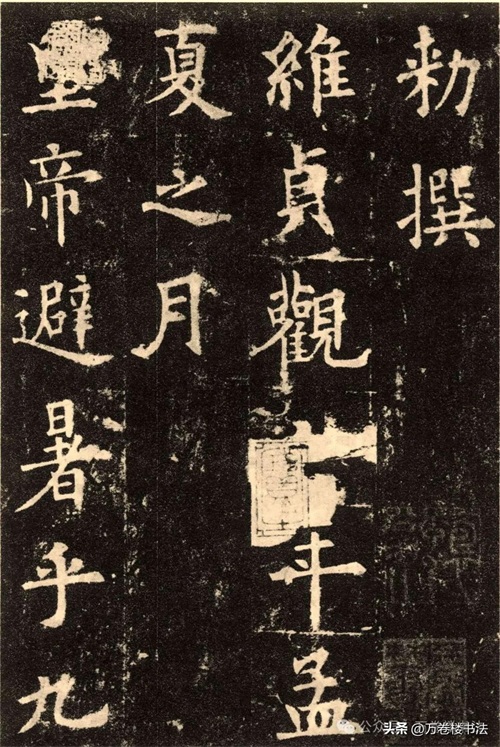 勑撰
維貞觀年孟
夏之月
皇帝避暑乎九
头条 @万卷楼书法